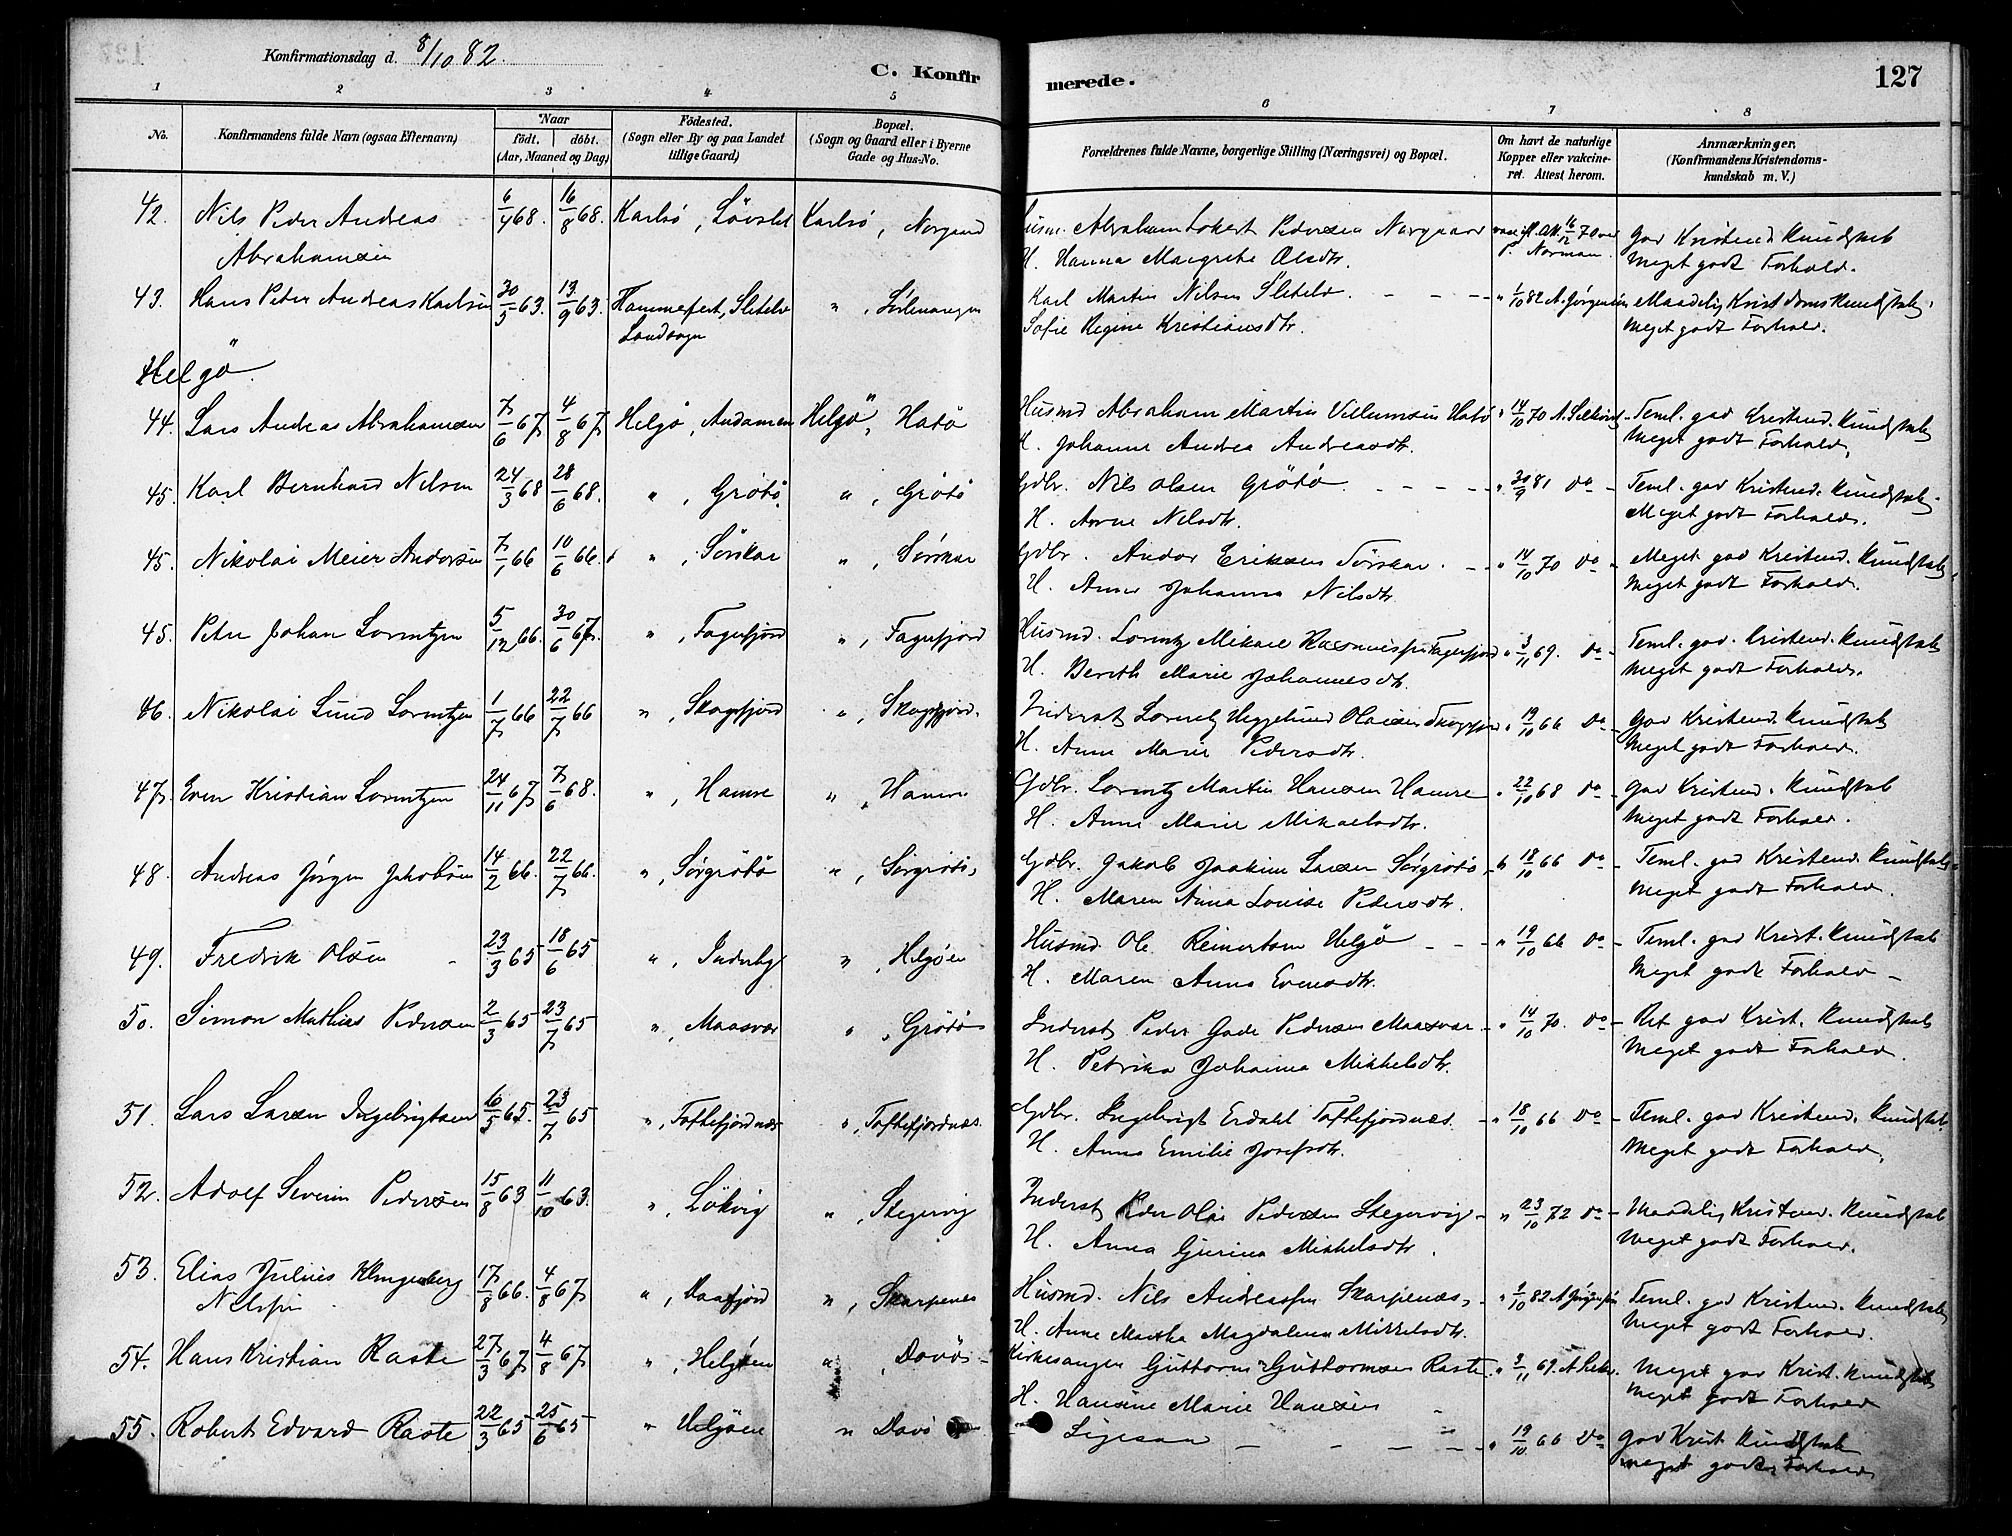 Konfirmationsdag d. 8/10 82.
C. Konfirmerede.
127
1 2 3 4 5 6 7 8
No.
Konfirmandens fulde Navn (ogsaa Efternavn)
Naar
födt. döbt.
(Aar, Maaned og Dag)
Födested.
(Sogn eller By og paa Landet
tillige Gaard)
Bopæl.
(Sogn og Gaard eller i Byerne
Gade og Hus-No.
Forældrenes fulde Navne, borgerlige Stilling (Næringsvei) og Bopæl.
Om havt de naturlige
Kopper eller vakcine-
ret. Attest herom.
Anmærkninger.
(Konfirmandens Kristendoms-
kundskab m. V.)
42. Nils Peder Andreas 68. 16/8 68. Karlsö, Karlsö, Norgaard Abraham Pedersen Norgaard 16/12 70 God Kristend. Kundskab
Abrahamsen H. Hanna Margrethe Olsdtr. P. Norman. Meget godt Forhold.
43. Hans Peter Andreas Karlsen 30/5 63. 13/9 63. Hammerfest, " Karl Martin Nilsen - - - " 1/10 82 A. Jørgensen Maadelig Kristdomskundskab.
Landsogn Sofie Regine Kristiansdtr. Meget godt Forhold.
Helgö
44. Lars Andreas Abrahamsen 7/6 67 4/8 67 Helgö, Andamen Helgö, Hatö Husmd Abraham Martin Villumsen Hatö " 14/10 70 Teml. god Kristend. Kundskab
H. Johanne Andrea Andreasdtr. Meget godt Forhold.
45. Karl Bernhard Nilsen 24/3 68 28/6 68. ", Grötö ", Grötö Gdbr. Nils Olsen Grötö. - - - " 30/9 81 Do - Teml. god Kristend. Kundskab.
H. Nilsdtr. Meget godt Forhold.
45. Nikolai Meier Andorsen 7/1 66 10/6 66. ", Sörskar ", Sørskar Gdbr. Andor Eriksen Sörskar. - " 14/10 70 Do - Meget god Kristend. Kundskab
H. Anne Johanna Nilsdtr. Meget godt Forhold.
45. Peter Johan Lorentzen 5/12 66. 30/6 67. ", Fagerfjord ", Fagerfjord Husmd. Lorentz Mikael Rasmussen Fagerfjord " 3/11 69. Do - Teml. god. Kristend. Kundskab
H. Berith Marie Johannesdtr. Meget godt Forhold.
46. Nikolai Lund Lorentzen 1/7 66 22/7 66 ", Skogsfjord ", Skogsfjord. Inderst Lorentz Heggelund Olaisen Skogsfjord " 19/10 66 Do - God Kristend. Kundskab
H. Anne Marie Pedersdtr. Meget godt Forhold.
47. Even Kristian Lorentzen 24/11 67 7/6 68. ", Hamre ", Hamre Gdbr. Lorentz Martin Hansen Hamre " 22/10 68 Do - God Kristend. Kundskab
H. Anne Marie Mikaelsdtr. Meget godt Forhold.
48. Andreas Jörgen Jakobsen 14/2 66. 22/7 66. ", Sørgrötö ", Sørgrötö Gdbr. Jakob Joakim Larsen Sørgrötö " 18/10 66 Do - Teml. god Kristend. Kundskab
H. Maren Anna Louise Pedersdtr. Meget godt Forhold.
49. Fredrik Olsen 23/3 65 18/6 65 ", Inderby ", Helgøen Husmd. Ole Reinertsen Helgö - - " 19/10 66 Do - Teml. god Krist. Kundskab
H. Maren Anna Evensdtr. Meget godt Forhold -
50. Simon Mathias Pedersen 2/3 65 23/7 65 ", Maasvær ", Grötö Inderst Peder Gade Pedersen Maasvær - " 14/10 70. Do - Ret god Krist. Kundskab
H. Petrika Johanna Mikkelsdtr. Meget godt Forhold.
51. Lars Larsen Ingebrigtsen 16/5 65. 23/7 65 ", Toftefjordnæs ", Toftefjordnæs. Gdbr. Ingebrigt Erdahl Toftefjordnæs. - " 18/10 66 Do - Teml. god Kristend. Kundskab.
H. Anna Emilie Josefsdtr. Meget godt Forhold.
52. Adolf Severin Pedersen 15/8 63 11/10 63. ", Lökvig ", Stegervig Inderst Peder Olai Pedersen Stegervig - " 23/10 72 Do - Maadelig Kristend. Kundskab
H. Anna Gjerina Mikkelsdtr. Meget godt Forhold.
53. Elias Julius Klingenberg 17/8 66. 4/8 67 ", Daafjord ", Skarpenes Husmd. Nils Andreassen Skarpenæs, " 1/10 82 A Jørgensen Teml. god Kristend. Kundskab
Nilssen. H. Anne Martha Magdalena Mikkelsdtr. Meget godt Forhold.
54. Hans Kristian Raste 27/3 67 4/8 67 ", Helgöen ", Davö Kirkesanger Guttorm Guttormsen Raste. " 3/11 69. Meget god Krist. Kundskab
H. Hansine Marie Hansen Meget godt Forhold
55. Robert Edvard Raste 22/3 65 25/6 65 " Helgöen " Davö Ligesaa - - - - " 19/10 66 Do God Krist Kundskab
Meget godt Forhold